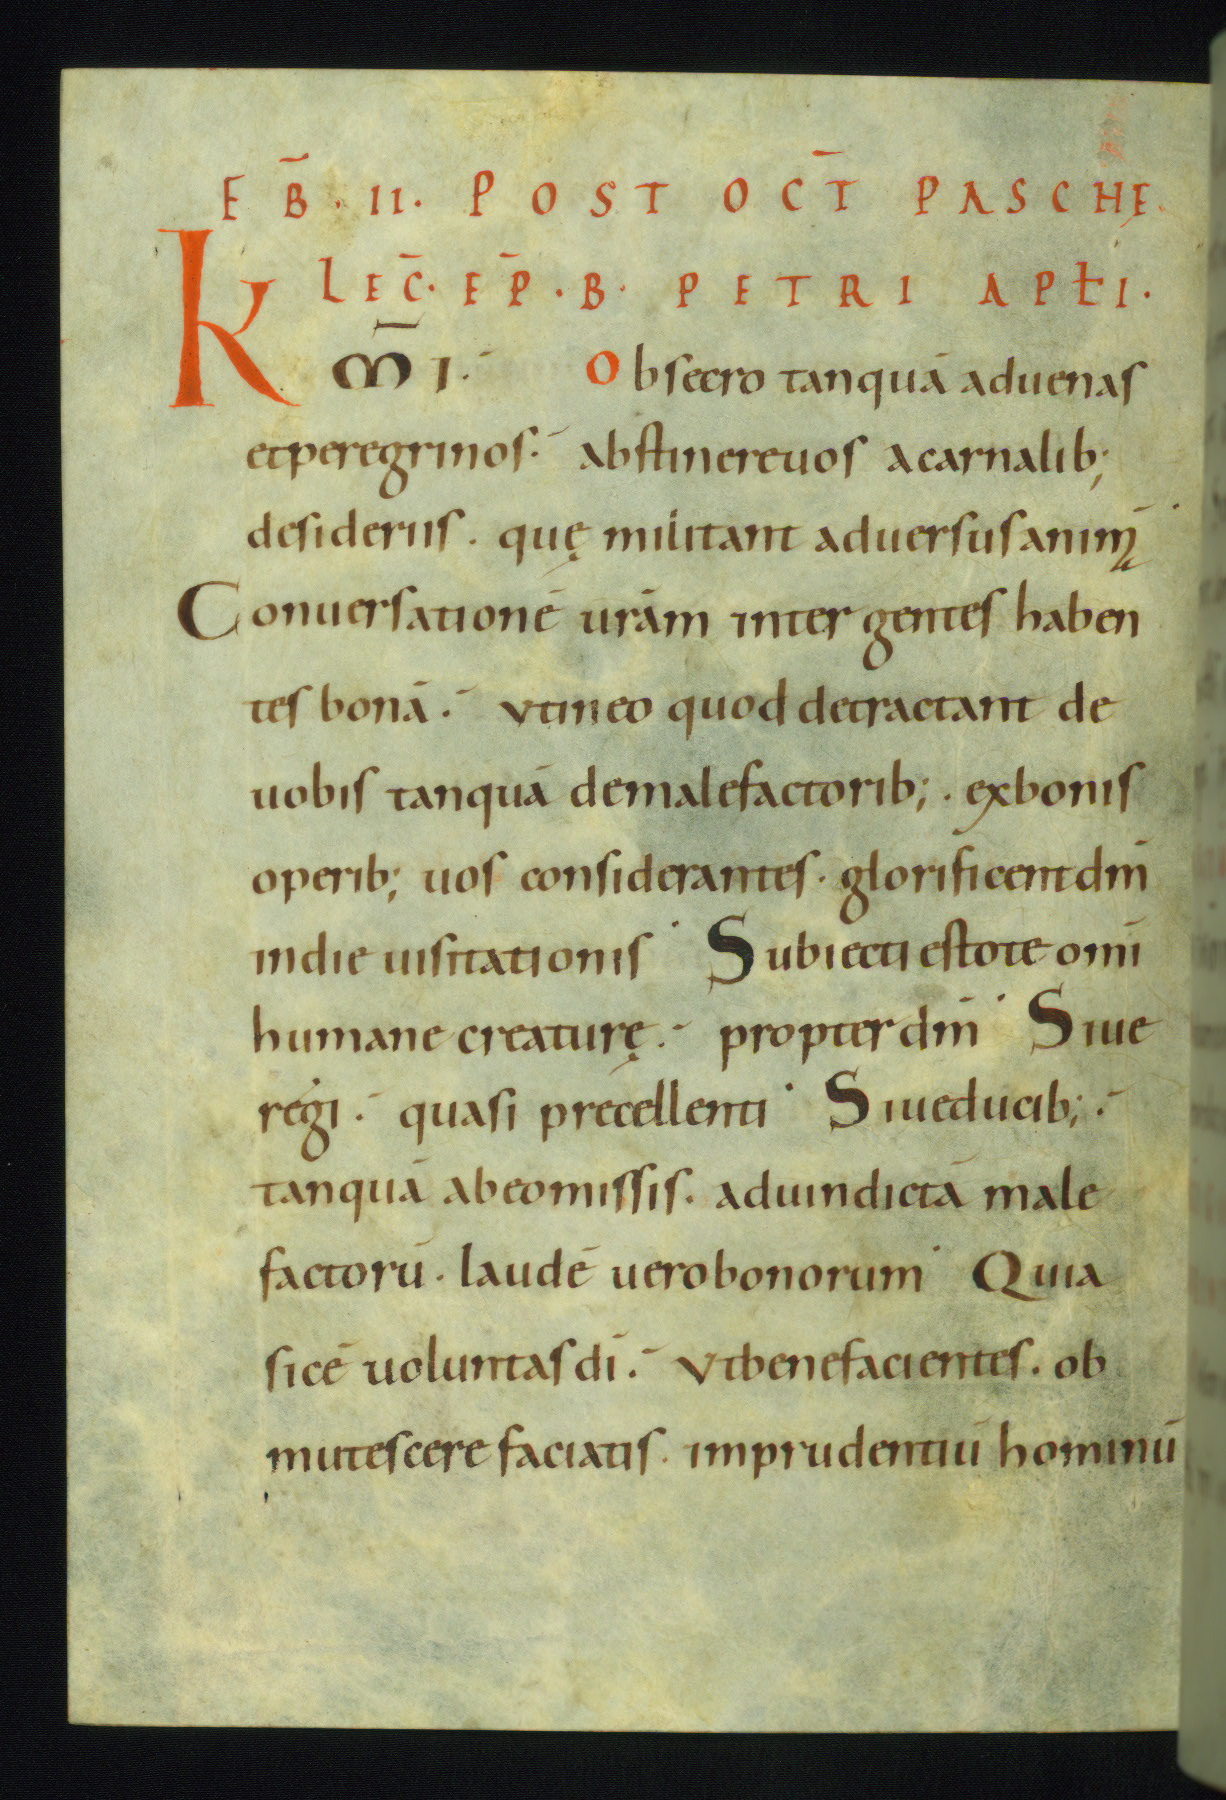 FB̄. II. POST OCT̄ PASCHĘ.
LEC̄. EP̄. B. PETRI APŁI.
K M̄I. Obsecro tanquā aduenas
et peregrinos. abstinere uos a carnalib;
desideriis. quę militant aduersus animā
Conuersationē ur̄am inter gentes haben
tes bonā. Vt in eo quod detractant de
uobis tanquā de malefactorib;. ex bonis
operib; uos considerantes. glorificent dm̄
in die uisitationis Subiecti estote om̄i
humane creaturę. propter dm̄ Siue
regi. quasi precellenti Siue ducib;.
tanquā ab eo missis. ad uindictā male
factorū. laudē uero bonorum Quia
sic ē uoluntas dī. Vt benefacientes. ob
mutescere faciatis. imprudentiū hominū